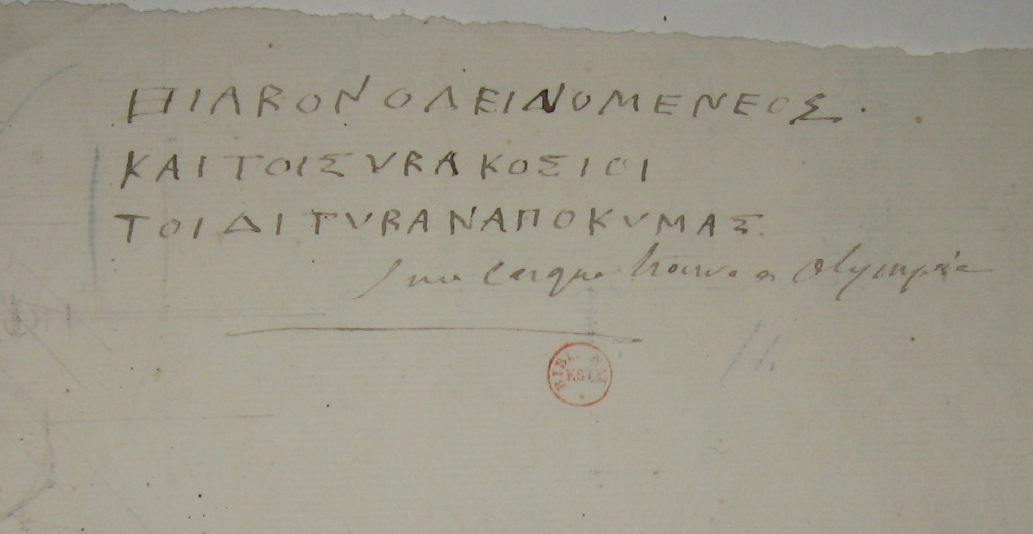 ΗΙΑRΟΝ Ο ΔΕΙΝΟΜΕΝΕΟΣ.
ΚΑΙ ΤΟΙ ΣΥRΑΚΟΣΙΟΙ
ΤΟΙ ΔΙ ΤΥRΑΝ ΑΠΟ ΚΥΜΑΣ.
casque trouvé a Olympie